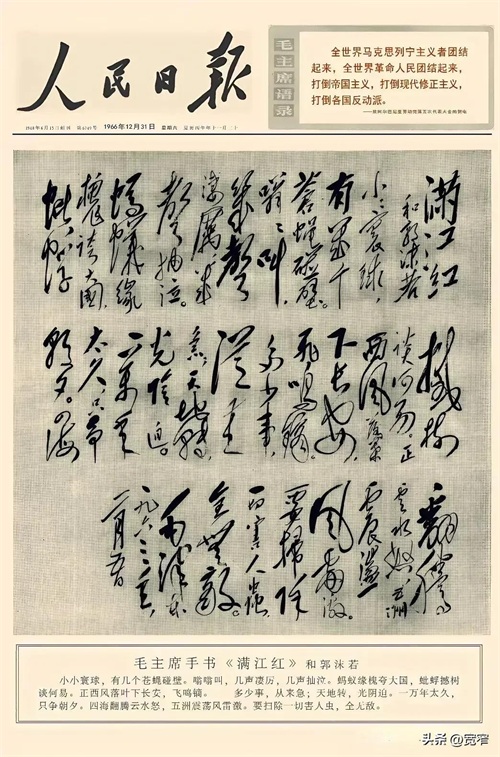 人民日報
毛主席语录
全世界马克思列宁主义者团结
起来,全世界革命人民团结起来,
打倒帝国主义,打倒现代修正主义,
打倒各国反动派。
1966年12月31日 星期六
滿江红
和郭沫若
小小寰球,
有幾个
蒼蝇碰壁。
嗡嗡叫,
幾聲
凄厲,幾
聲抽泣。
螞蟻缘
槐誇大國,
蚍蜉
撼樹
談何易。正
西风落葉
下长安,
飛鸣镝。
多少事,
從来
急;天地轉,
光陰迫。
一萬年
太久,只争
朝夕。四海
翻騰
雲水怒,五洲
震盪
风雷激。
要掃除
一切害人蟲,
全無敵。
毛泽东
一九六三年
二月五日
毛主席手书《满江红》和郭沫若
小小寰球,有几个苍蝇碰壁。嗡嗡叫,几声凄厉,几声抽泣。蚂蚁缘槐夸大国,蚍蜉撼树
谈何易。正西风落叶下长安,飞鸣镝。 多少事,从来急;天地转,光阴迫。一万年太久,
只争朝夕。四海翻腾云水怒,五洲震荡风雷激。要扫除一切害人虫,全无敌。
头条@宽窄